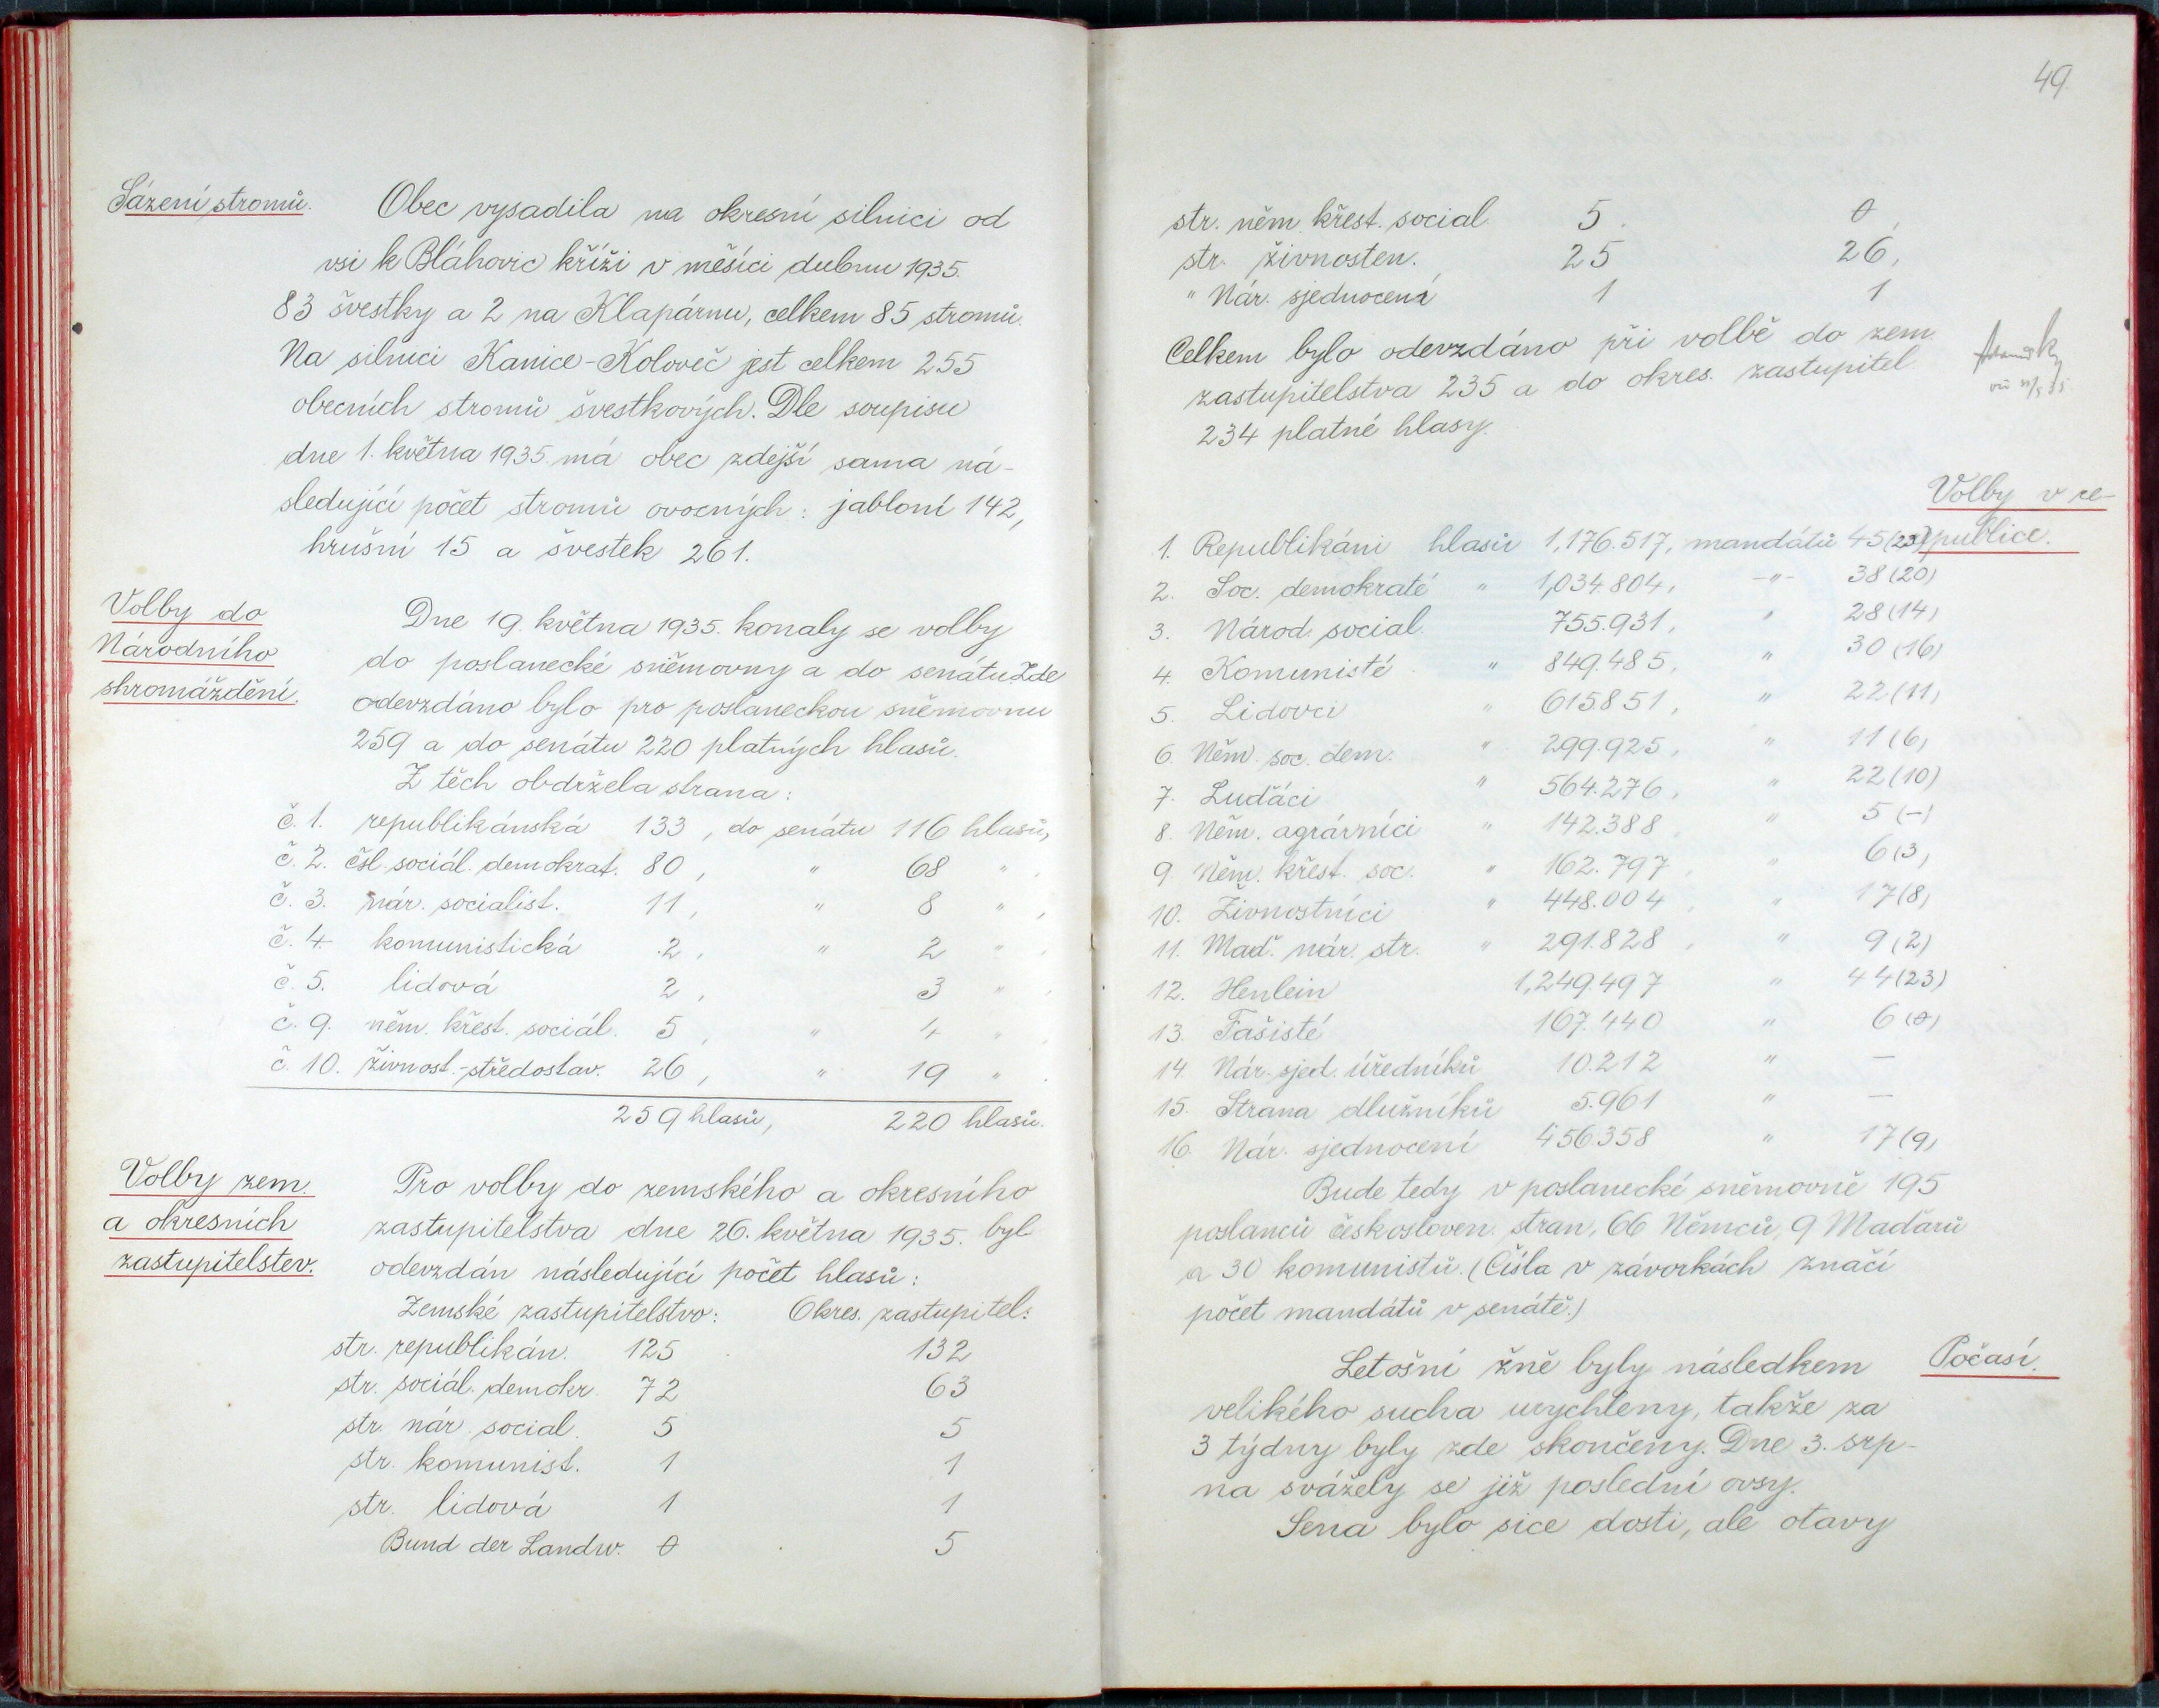 Sázení stromů. Obec vysadila na okresní silnici od
vsi k Bláhovic kříži v měsíci dubnu 1935.
83 švestky a 2 na Klapárnu, celkem 85 stromů.
Na silnici Kanice-Koloveč jest celkem 255
obecních stromů švestkových. Dle soupisu
dne 1. května 1935 má obec zdejší sama ná-
sledující počet stromů ovocných: jabloní 142,
hrušní 15 a švestek 261.
Volby do
Národního
shromáždění.
Dne 19. května 1935. konaly se volby
do poslanecké sněmovny a do senátu. Zde
odevzdáno bylo pro poslaneckou sněmovnu
259 a do senátu 220 platných hlasů.
Z těch obdržela strana:
č. 1. republikánská 133, do senátu 116 hlasů,
č. 2. čsl. sociál. demokrat. 80, " 68 " ,
č. 3. nár. socialist. 11, " 8 " ,
č. 4. komunistická 2, " 2 " ,
č. 5. lidová 2, 3 " ,
č. 9. něm. křest. sociál. 5, " 4 " ,
č. 10. živnost.-středostav. 26, " 19 " .
259 hlasů, 220 hlasů.
Volby zem.
a okresních
zastupitelstev.
Pro volby do zemského a okresního
zastupitelstva dne 26. května 1935. byl
odevzdán následující počet hlasů:
Zemské zastupitelstvo: Okres. zastupitel.:
str. republikán. 125 132
str. sociál. demokr. 72 63
str. nár. social. 5 5
str. komunist. 1 1
str. lidová 1 1
Bund der Landw. 0 5
49.
str. něm. křest. social 5. 0,
str. živnosten. 25 26,
" Nár. sjednocení 1 1
Celkem bylo odevzdáno při volbě do zem.
zastupitelstva 235 a do okres. zastupitel.
234 platné hlasy.
Volby v re-
publice.
1. Republikáni hlasů 1,176.517, mandátů 45 (23)
2. Soc. demokraté " 1,034.804, -"- 38 (20)
3. Národ. social. 755.931, " 28 (14)
4. Komunisté " 849.485, " 30 (16)
5. Lidovci " 615851, " 22 (11)
6. Něm. soc. dem. " 299.925, " 11 (6)
7. Luďáci " 564.276, " 22 (10)
8. Něm. agrárníci " 142.388, " 5 (-)
9. Něm. křest. soc. " 162.797, " 6 (3)
10. Živnostníci " 448.004, " 17 (8)
11. Maď. nár. str. " 291.828, " 9 (2)
12. Henlein 1,249.497 " 44 (23)
13. Fašisté 167.440 " 6 (0)
14. Nár. sjed. úředníků 10.212 " —
15. Strana dlužníků 5.961 " —
16. Nár. sjednocení 456.358 " 17 (9)
Bude tedy v poslanecké sněmovně 195
poslanců českosloven. stran, 66 Němců, 9 Maďarů
a 30 komunistů. (Čísla v závorkách značí
počet mandátů v senátě.)
Počasí.
Letošní žně byly následkem
velikého sucha urychleny, takže za
3 týdny byly zde skončeny. Dne 3. srp-
na svážely se již poslední ovsy.
Sena bylo sice dosti, ale otavy